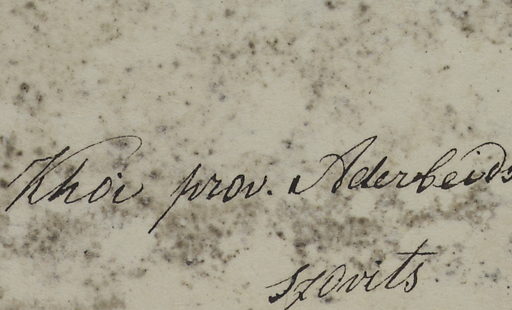 Khoi prov. Aderbeids
Szovits